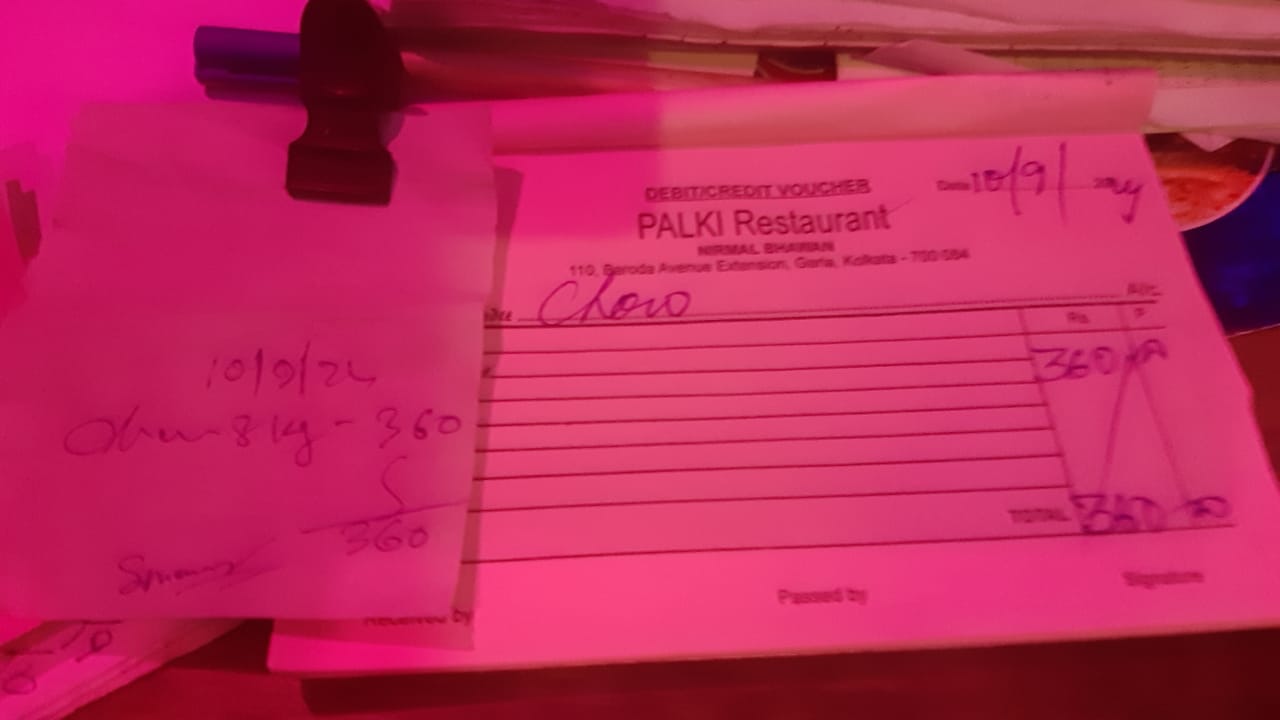 10/9/24
8 kg - 360
360
DEBIT/CREDIT VOUCHER
Date 10/9/ 2024
PALKI Restaurant
NIRMAL BHAWAN
110, Baroda Avenue Extension, Garia, Kolkata - 700 084
A/c.
Rs. P.
360
TOTAL 360
Received by
Passed by
Signature